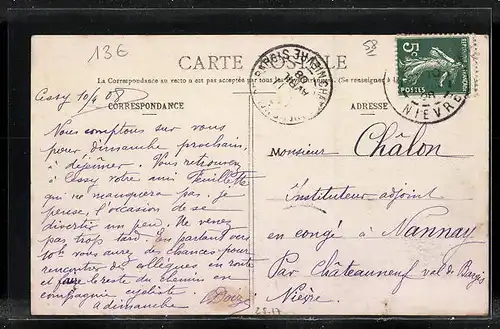 13€
58
CARTE POSTALE
La Correspondance au recto n'est pas acceptée par tous les
CORRESPONDANCE
ADRESSE
5c
POSTES
NIEVRE
Cessy 10/4 08
Nous comptons sur vous
pour dimanche prochain,
à déjeuner. Vous retrouverez
à Cessy votre ami Feuillette
qui ne manquera pas, je
pense, l'occasion de se
divertir un peu. Ne venez
pas trop tard. En partant vers
10h vous aurez des chances pour
rencontrer des collègues en route
et faire le reste du chemin en
compagnie cycliste
à dimanche
Monsieur Châlon
Instituteur adjoint
en congé à Nannay
Par Châteauneuf val de Bargis
Nièvre